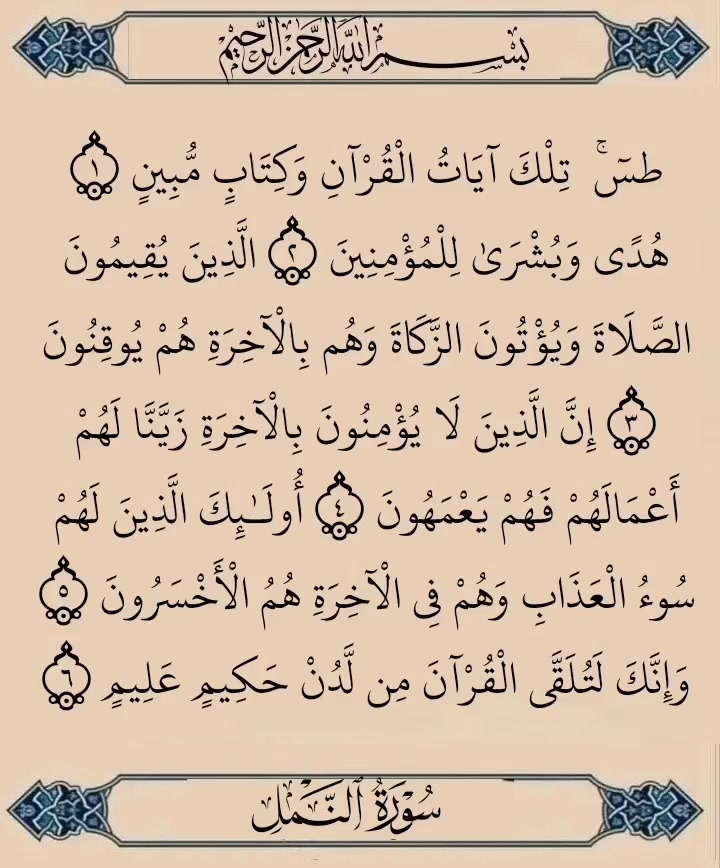 بِسْمِ اللَّهِ الرَّحْمَٰنِ الرَّحِيمِ
طسٓ ۚ تِلْكَ آيَاتُ الْقُرْآنِ وَكِتَابٍ مُّبِينٍ ١
هُدًى وَبُشْرَىٰ لِلْمُؤْمِنِينَ ٢ الَّذِينَ يُقِيمُونَ
الصَّلَاةَ وَيُؤْتُونَ الزَّكَاةَ وَهُم بِالْآخِرَةِ هُمْ يُوقِنُونَ
٣ إِنَّ الَّذِينَ لَا يُؤْمِنُونَ بِالْآخِرَةِ زَيَّنَّا لَهُمْ
أَعْمَالَهُمْ فَهُمْ يَعْمَهُونَ ٤ أُولَـٰئِكَ الَّذِينَ لَهُمْ
سُوءُ الْعَذَابِ وَهُمْ فِي الْآخِرَةِ هُمُ الْأَخْسَرُونَ ٥
وَإِنَّكَ لَتُلَقَّى الْقُرْآنَ مِن لَّدُنْ حَكِيمٍ عَلِيمٍ ٦
سُورَةُ النَّمْلِ